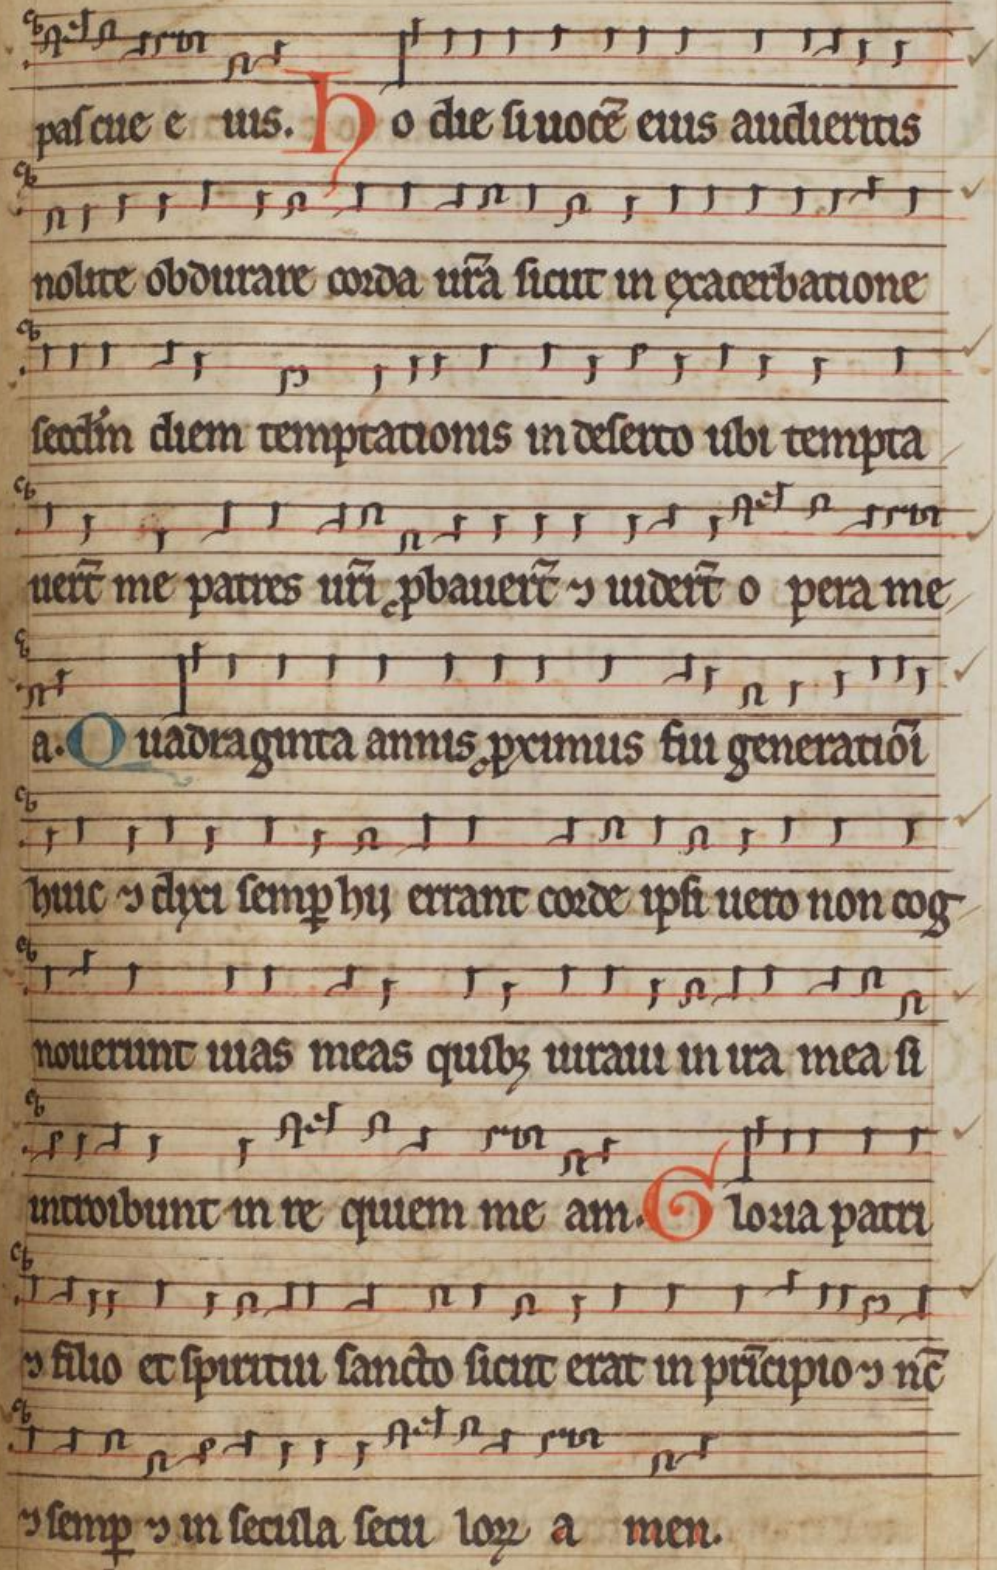 paſcue e uis. Ho die ſi uocē eius audieritis
nolite obdurare corda ur̄a ſicut in exacerbatione
ſecd̄m diem temptationis in deſerto ubi tempta
uert̄ me patres ur̄i ꝓbauert̄ ⁊ uidert̄ o pera me
a. Quadraginta annis ꝓximus fui generatiōi
huic ⁊ dixi ſemꝑ hij errant corde ipſi uero non cog
nouerunt uias meas quibꝫ iuraui in ira mea ſi
introibunt in re quiem me am. Gloria patri
⁊ filio et ſpiritui ſancto ſicut erat in prīcipio ⁊ nc̄
⁊ ſemꝑ ⁊ in ſecula ſecu loꝝ a men.